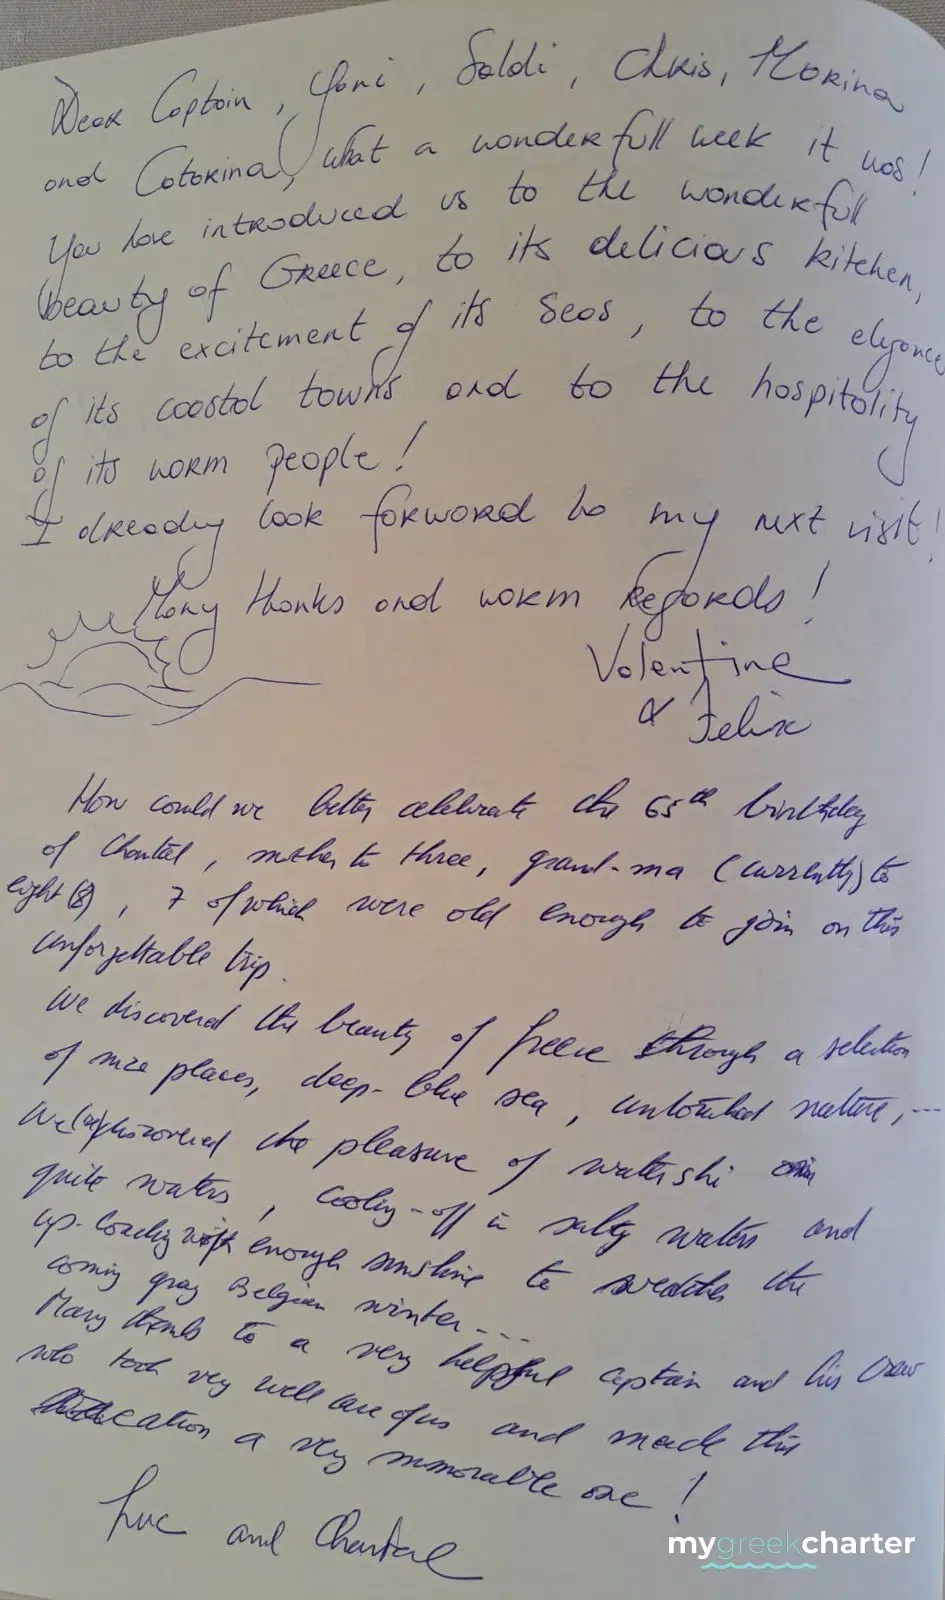 Dear Captain, Yoni, Saldi, Chris, Morina
and Catarina, what a wonderfull week it was!
You have introduced us to the wonderfull
beauty of Greece, to its delicious kitchen,
to the excitement of its seas, to the elegance
of its coastal towns and to the hospitality
of its warm people!
I already look forward to my next visit!
Many thanks and warm regards!
Valentine
& Felix
How could we better celebrate the 65th birthday
of Chantal, mother to three, grand-ma (currently) to
eight (8), 7 of which were old enough to join on this
unforgettable trip.
We discovered the beauty of Greece through a selection
of nice places, deep-blue sea, untouched nature, ...
We (re)discovered the pleasure of water ski in
quite waters, cooling-off in salty waters and
up-loading with enough sunshine to the
coming gray Belgian winter....
Many thanks to a very helpful captain and his crew
who took very well care of us and made this
vacation a very memorable one!
Luc and Chantal
mygreekcharter